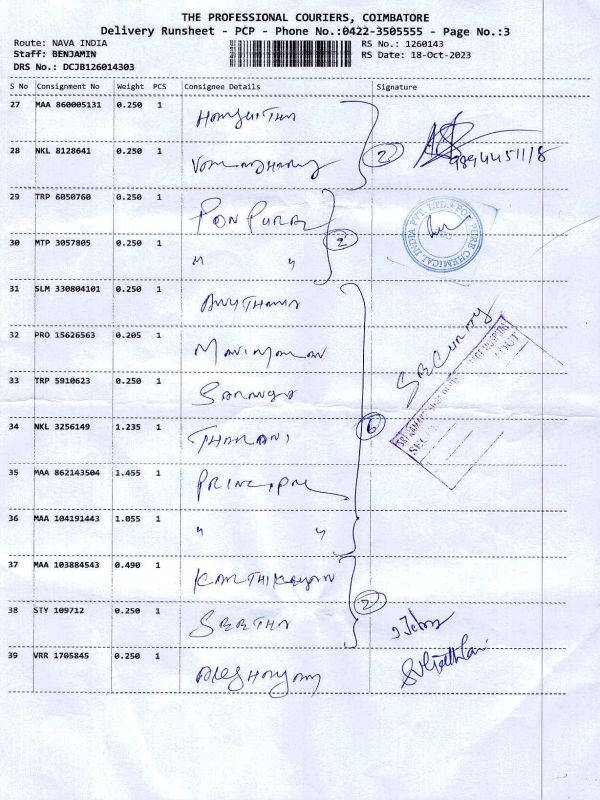 THE PROFESSIONAL COURIERS, COIMBATORE
Delivery Runsheet - PCP - Phone No.:0422-3505555 - Page No.:3
Route: NAVA INDIA RS No.: 1260143
Staff: BENJAMIN RS Date: 18-Oct-2023
DRS No.: DCJB126014303
S No Consignment No Weight PCS Consignee Details Signature
27 MAA 860005131 0.250 1
28 NKL 8128641 0.250 1 2 9894451118
29 TRP 6050760 0.250 1 PON PURE
30 MTP 3057805 0.250 1 " " 2
PON PURE CHEMICAL INDIA PVT. LTD.
31 SLM 330804101 0.250 1
32 PRO 15626563 0.205 1 Manimaran
SECURITY
33 TRP 5910623 0.250 1
34 NKL 3256149 1.235 1 THARANI 6
35 MAA 862143504 1.455 1 PRINCIPAL
36 MAA 104191443 1.055 1 " "
37 MAA 103884543 0.490 1 KARTHIKEYAN
38 STY 109712 0.250 1 SEETHA 2
39 VRR 1705845 0.250 1